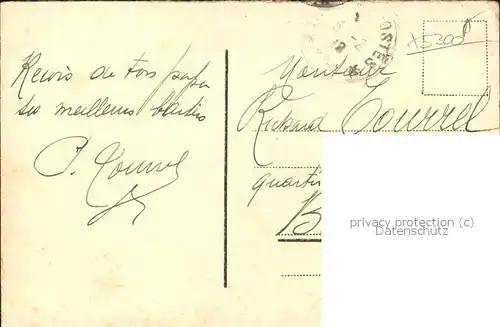 Reçois de ton papa
ses meilleurs
Monsieur
Richard Tourrel
quarti
B
POSTES
x5300
privacy protection
Datenschutz